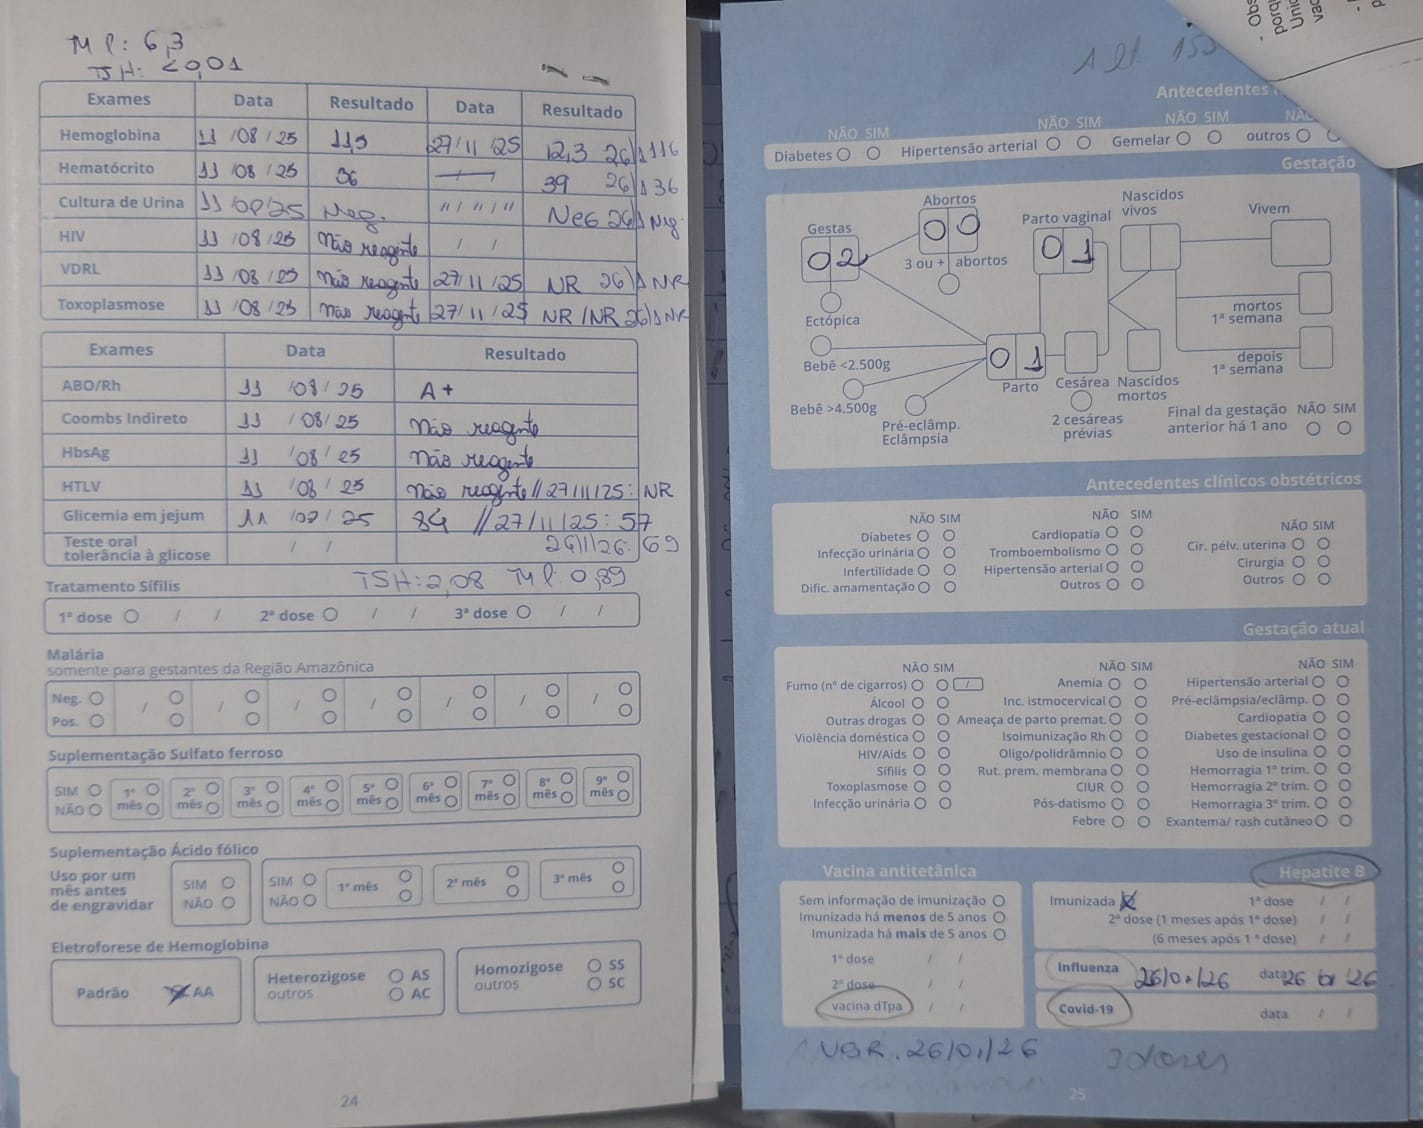 TSH: <0,01
Exames Data Resultado Data Resultado
Hemoglobina 11/08/25 11,5 27/11/25 12,3 26/1 116
Hematócrito 11/08/25 36 39 26/1 36
Cultura de Urina 11/08/25 Neg. "/"/" Neg 26/1 Neg
HIV 11/08/25 não reagente / /
VDRL 11/08/25 não reagente 27/11/25 NR 26/1 NR
Toxoplasmose 11/08/25 não reagente 27/11/25 NR/NR 26/1 NR
Exames Data Resultado
ABO/Rh 11/08/25 A+
Coombs Indireto 11/08/25 não reagente
HbsAg 11/08/25 não reagente
HTLV 11/08/25 não reagente // 27/11/25: NR
Glicemia em jejum 11/08/25 84 // 27/11/25: 57
Teste oral / / 26/1/26: 69
tolerância à glicose
TSH: 2,08
Tratamento Sífilis
1ª dose / / 2ª dose / / 3ª dose / /
Malária
somente para gestantes da Região Amazônica
Neg. / / / / / / / /
Pos.
Suplementação Sulfato ferroso
SIM 1º 2º 3º 4º 5º 6º 7º 8º 9º
NÃO mês mês mês mês mês mês mês mês mês
Suplementação Ácido fólico
Uso por um
mês antes
de engravidar
SIM
NÃO
SIM 1º mês 2º mês 3º mês
NÃO
Eletroforese de Hemoglobina
Padrão AA
Heterozigose AS
outros AC
Homozigose SS
outros SC
24
Antecedentes
NÃO SIM NÃO SIM NÃO SIM
Diabetes Hipertensão arterial Gemelar outros
Gestação
Gestas 02
Abortos 00
3 ou + abortos
Parto vaginal 01
Nascidos
vivos
Vivem
Ectópica
mortos
1ª semana
Bebê <2.500g
Parto 01
Cesárea
Nascidos
mortos
depois
1ª semana
Bebê >4.500g
Pré-eclâmp.
Eclâmpsia
2 cesáreas
prévias
Final da gestação NÃO SIM
anterior há 1 ano
Antecedentes clínicos obstétricos
NÃO SIM NÃO SIM NÃO SIM
Diabetes Cardiopatia Cir. pélv. uterina
Infecção urinária Tromboembolismo Cirurgia
Infertilidade Hipertensão arterial Outros
Dific. amamentação Outros
Gestação atual
NÃO SIM NÃO SIM NÃO SIM
Fumo (nº de cigarros) / Anemia Hipertensão arterial
Álcool Inc. istmocervical Pré-eclâmpsia/eclâmp.
Outras drogas Ameaça de parto premat. Cardiopatia
Violência doméstica Isoimunização Rh Diabetes gestacional
HIV/Aids Oligo/polidrâmnio Uso de insulina
Sífilis Rut. prem. membrana Hemorragia 1º trim.
Toxoplasmose CIUR Hemorragia 2º trim.
Infecção urinária Pós-datismo Hemorragia 3º trim.
Febre Exantema/ rash cutâneo
Vacina antitetânica
Sem informação de imunização
Imunizada há menos de 5 anos
Imunizada há mais de 5 anos
1ª dose / /
2ª dose / /
vacina dTpa / /
Hepatite B
Imunizada 1ª dose / /
2ª dose (1 meses após 1ª dose) / /
(6 meses após 1ª dose) / /
Influenza 26/01/26 data 26 01 26
Covid-19 data / /
26/01/26 3 doses
25